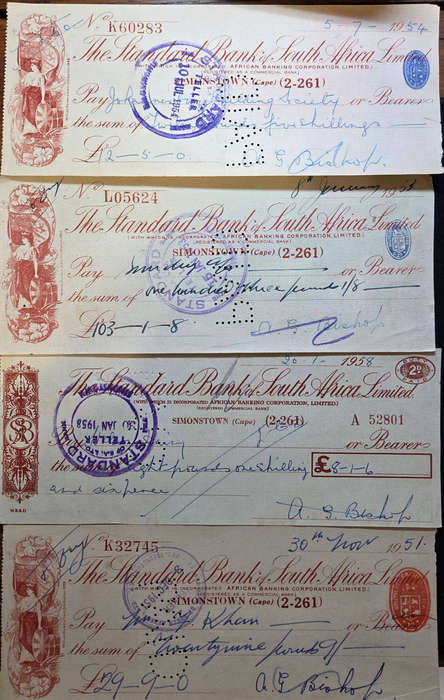 No K60283 5-7-1954
The Standard Bank of South Africa Limited.
(WITH WHICH IS INCORPORATED AFRICAN BANKING CORPORATION, LIMITED)
(REGISTERED AS A COMMERCIAL BANK)
SIMONSTOWN (Cape) (2-261)
Pay Society or Bearer
the sum of five shillings
£12-5-0 A G Bishop.
No L05624 8th January 19
The Standard Bank of South Africa Limited.
(WITH WHICH IS INCORPORATED AFRICAN BANKING CORPORATION, LIMITED)
(REGISTERED AS A COMMERCIAL BANK)
SIMONSTOWN (Cape) (2-261)
Pay or Bearer
the sum of one hundred & three pounds 1/8
£103-1-8 A G Bishop
20-1-1958 2D
The Standard Bank of South Africa Limited.
(WITH WHICH IS INCORPORATED AFRICAN BANKING CORPORATION, LIMITED)
(REGISTERED AS A COMMERCIAL BANK)
SIMONSTOWN (Cape) (2-261) A 52801
or Bearer
the eight pounds one shilling £8-1-6
and sixpence
A. G. Bishop
No K32745 30th Nov 1951.
The Standard Bank of South Africa Limited.
(WITH WHICH IS INCORPORATED AFRICAN BANKING CORPORATION, LIMITED)
(REGISTERED AS A COMMERCIAL BANK)
SIMONSTOWN (Cape) (2-261)
Pay Khan or Bearer
the sum of Twentynine pounds 9/-
£29-9-0 A G Bishop